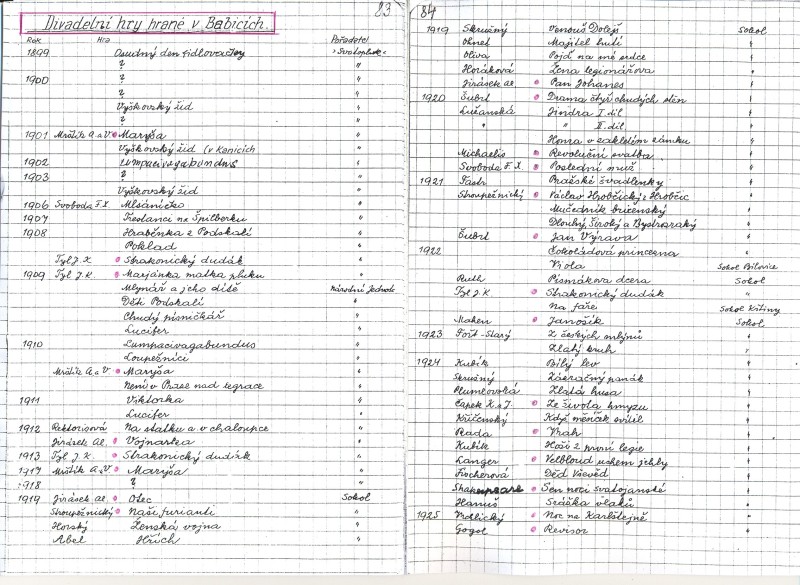 83
Divadelní hry hrané v Babicích.
Rok Hra Pořadatel
1899 Osudný den Fidlovačky "Svatopluk"
? "
1900 ? "
? "
Vyškovský žid "
? "
1901 Mrštík A. a V. Maryša "
Vyškovský žid (v Kanicích "
1902 Lumpacivagabundus "
1903 ? "
Vyškovský žid "
1906 Svoboda F.X. Mlsáníčko "
1907 Trestanci na Špilberku "
1908 Hraběnka z Podskalí "
Poklad "
Tyl J.K. Strakonický dudák "
1909 Tyl J.K. Marjánka matka pluku "
Mlynář a jeho dítě Národní Jednota
Děti Podskalí "
Chudý písničkář "
Lucifer "
1910 Lumpacivagabundus "
Loupežníci "
Mrštík A. a V. Maryša "
Není v Praze nad legrace "
1911 Viktorka "
Lucifer "
1912 Rektorisová Na statku a v chaloupce "
Jirásek Al. Vojnarka "
1913 Tyl J.K. Strakonický dudák "
1917 Mrštík A. a V. Maryša "
1918 ? "
1919 Jirásek Al. Otec Sokol
Stroupežnický Naši furianti "
Horský Ženská vojna "
Abel Hřích "
84
1919 Skružný Venouš Dolejš Sokol
Ohnet Majitel hutí "
Oliva Pojď na mé srdce "
Horáková Žena legionářova "
Jirásek Al. Pan Johanes "
1920 Šubrt Drama čtyř chudých stěn "
Lužanská Jindra I. díl "
" " II. díl "
Honza v zakletém zámku "
Michaelis Revoluční svatba "
Svoboda F.X. Poslední muž "
1921 Fastr Pražské švadlenky "
Stroupežnický Václav Hrobčický z Hrobčic "
Mučedník brixenský "
Dlouhý, Široký a Bystrozraký "
Šubrt Jan Výrava "
1922 Čokoládová princezna "
Viola Sokol Bílovice
Ruth Písmákova dcera Sokol
Tyl J.K. Strakonický dudák "
Na faře Sokol Křtiny
Mahen Janošík Sokol
1923 Fořt-Starý Z českých mlýnů "
Zlatý kruh "
1924 Kubík Bílý lev "
Skružný Zázračný panák "
Plumlovská Zlatá husa "
Čapek K. a J. Ze života hmyzu "
Křičenský Když měsíček svítil "
Rada Vrah "
Kubík Hoši z první legie "
Langer Velbloud uchem jehly "
Fischerová Děd Vševěd "
Shakespeare Sen noci svatojanské "
Hanuš Srážka vlaků "
1925 Vrchlický Noc na Karlštejně "
Gogol Revisor "